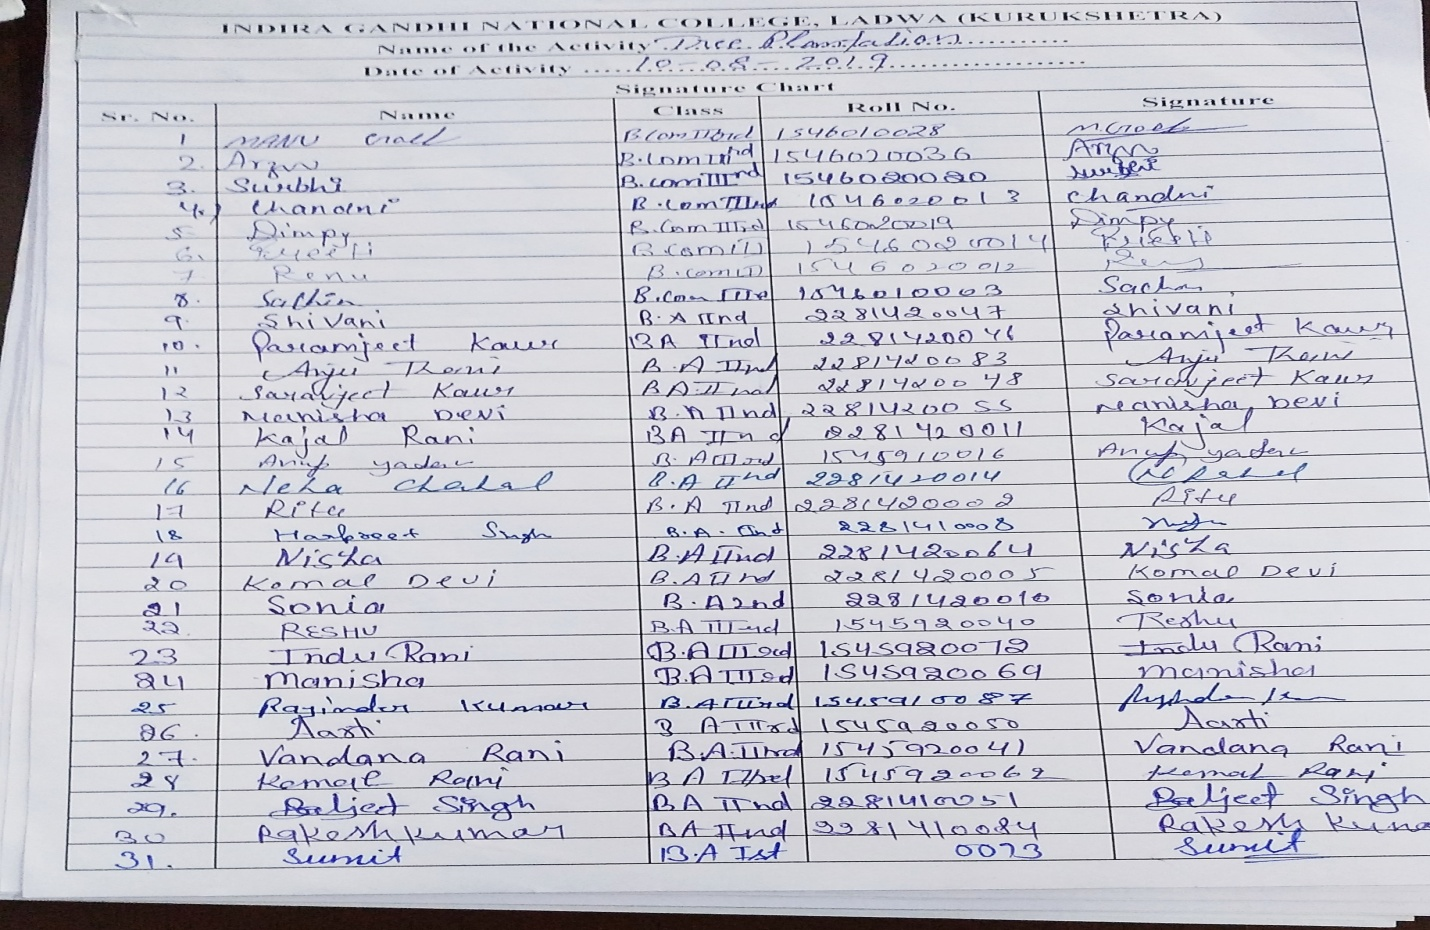 INDIRA GANDHI NATIONAL COLLEGE, LADWA (KURUKSHETRA)
Name of the Activity Tree Plantation
Date of Activity 10-08-2019
Signature Chart
Sr. No. Name Class Roll No. Signature
1 MANU B.Com IIIrd 1546010028
2. Arzun B.Com IIIrd 1546020036 Arzun
3. Surbhi B.com IIIrd 1546020020 Surbhi
4. Chandni B.Com IIIrd 1546020013 Chandni
5 Dimpy B.Com IIIrd 1546020019 Dimpy
6. B.Com III 1546020014
7 Renu B.com III 1546020012 Renu
8. Sachin B.Com IIIrd 1546010003 Sachin
9. Shivani B.A IInd 2281420047 Shivani
10. Paramjeet Kaur BA IInd 2281420046 Paramjeet Kaur
11 Anju Rani B.A IInd 2281420083 Anju Rani
12 Saravjeet Kaur BA IInd 2281420048 Saravjeet Kaur
13 Manisha Devi B.A IInd 2281420055 Manisha Devi
14 Kajal Rani BA IInd 2281420011 Kajal
15 Anuf yadav B.A IIIrd 1545910016 Anuf yadav
16 Neha Chahal B.A IInd 2281420014
17 Ritu B.A IInd 2281420002 Ritu
18 Harpreet Singh B.A. IInd 2281410008
19 Nisha B.A IInd 2281420064 Nisha
20 Komal Devi B.A IInd 2281420005 Komal Devi
21 Sonia B.A 2nd 2281420010 Sonia
22. RESHU B.A IIIrd 1545920040 Reshu
23 Indu Rani B.A IIIrd 1545920072 Indu Rani
24 Manisha B.A IIIrd 1545920069 Manisha
25 Rajinder Kumar B.A IIIrd 1545910087
26. Aarti B A IIIrd 1545920050 Aarti
27. Vandana Rani B.A IIIrd 1545920041 Vandana Rani
28 Komal Rani B A IIIrd 1545920062 Komal Rani
29. Baljeet Singh BA IInd 2281410051 Baljeet Singh
30 Rakesh kumar BA IInd 2281410084 Rakesh Kuma
31. Sumit B.A Ist 0073 Sumit